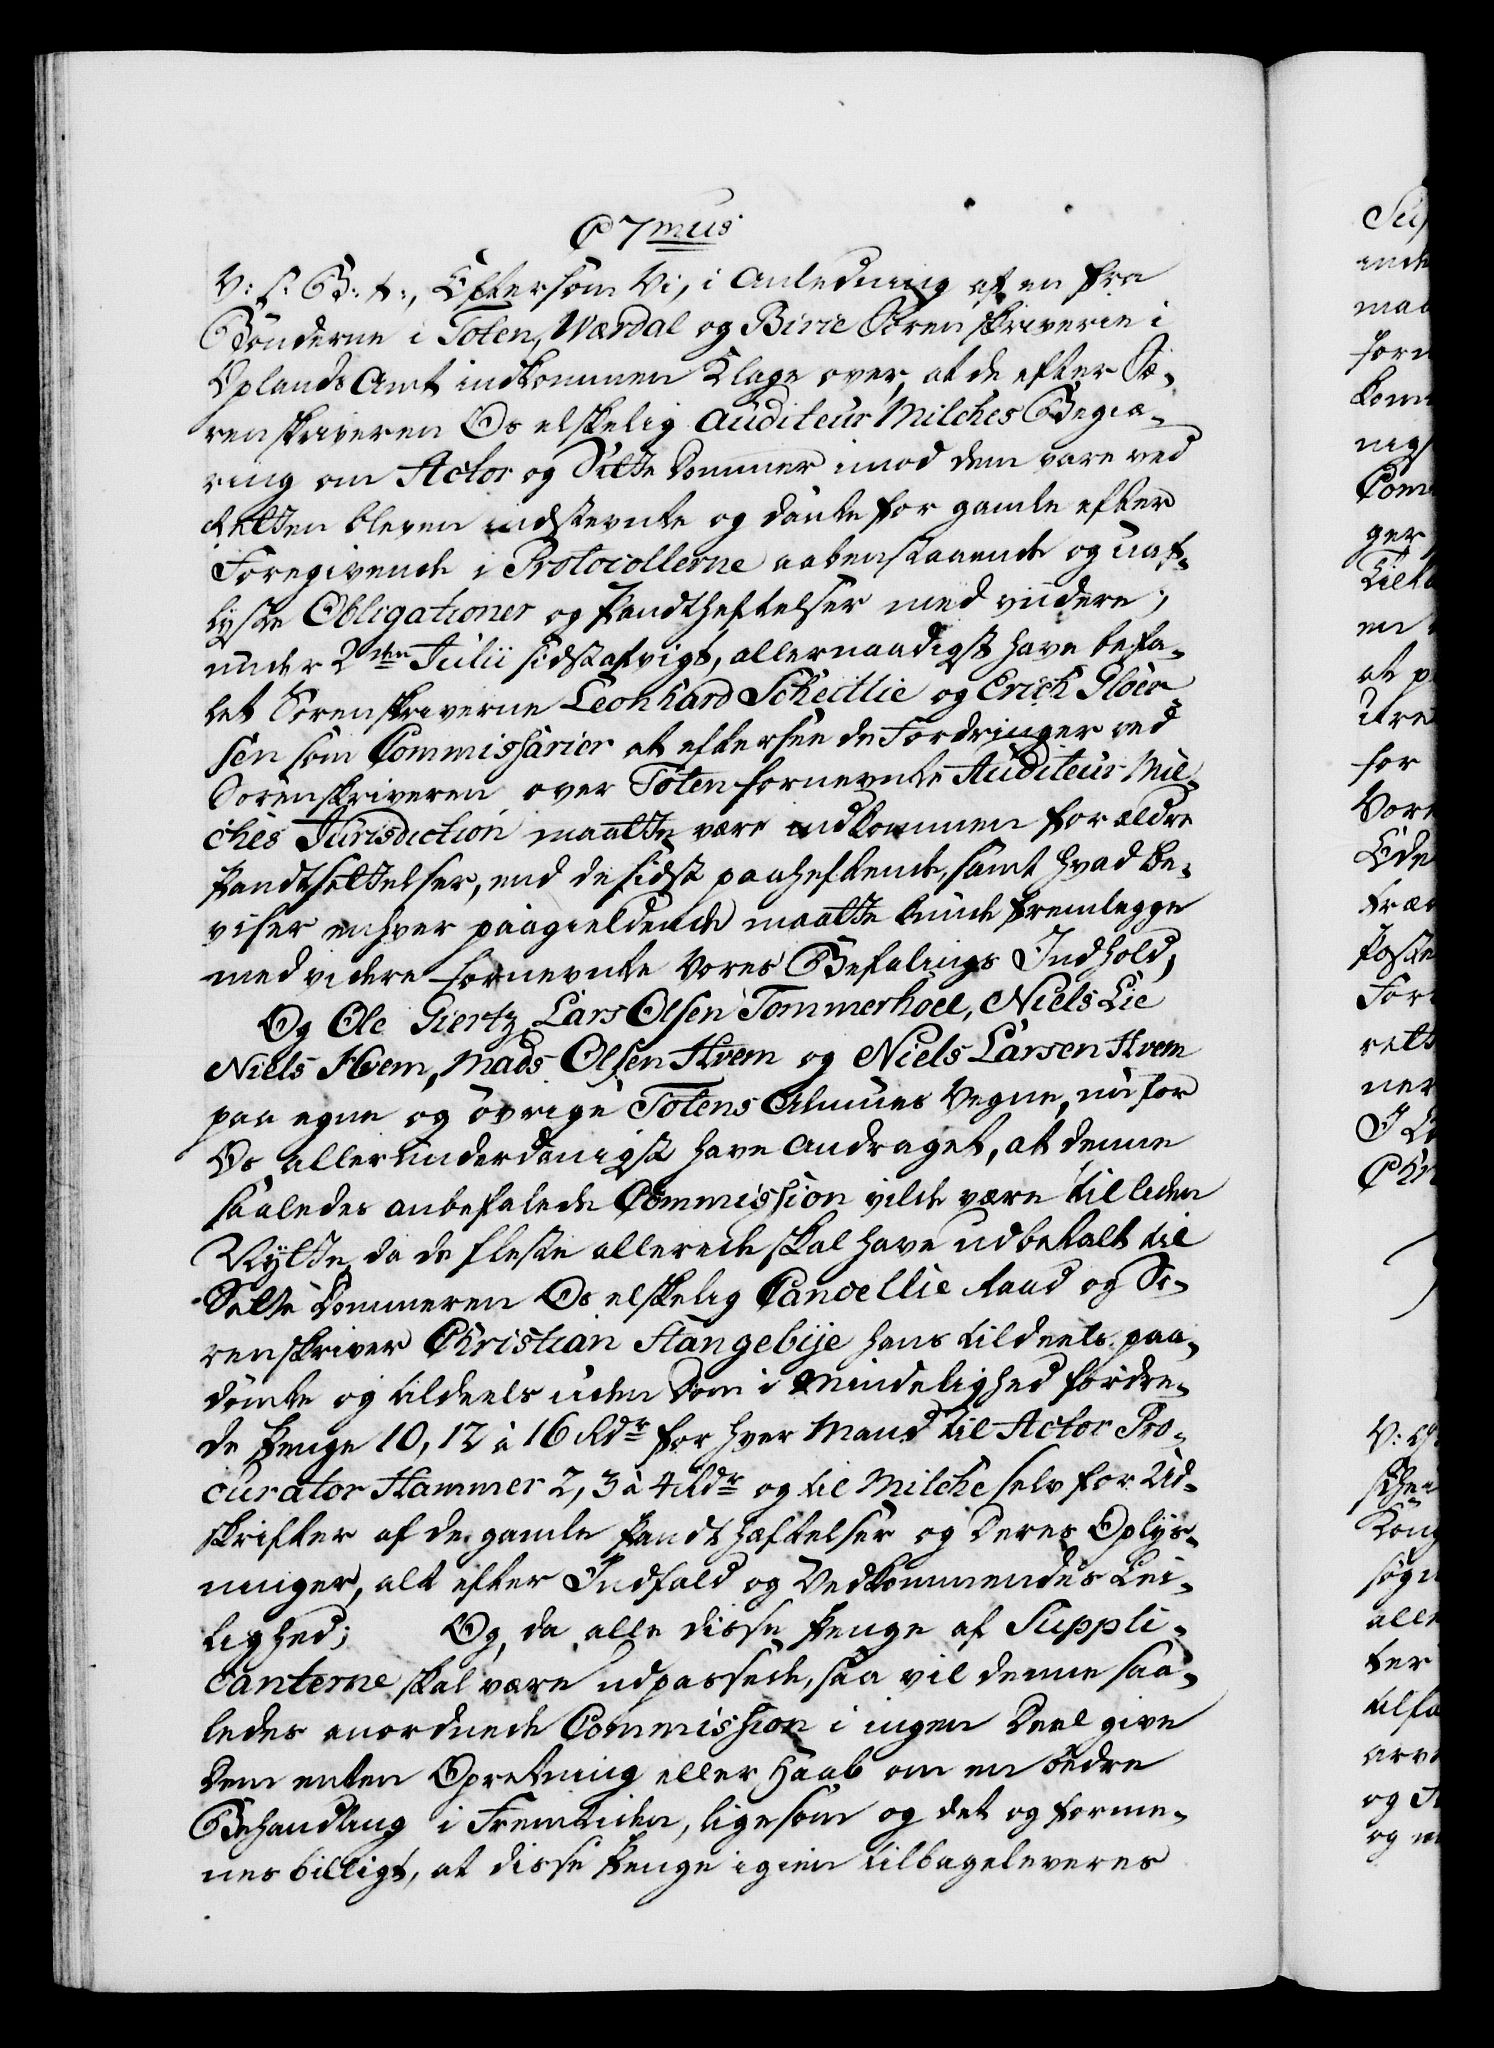 C7mus
V: S. G: t:, Eftersom Vi, i Anledning af en fra
Bønderne i Toten, Wardal og Birie Sorenskriverie i
Oplands Amt indkommen Klage over, at de efter So-
renskriveren Os elskelig Auditeur Milches Begiæ-
ring om Actor og Sætte Dommer imod dem vare ved
Retten bleven indstevnte og dømte for gamle efter
Foregivende i Protocollerne aabenstaaende og uaf-
lyste Obligationer og Pandtheftelser med viidere;
under 2den Julii sidstafvigt, allernaadigst have befa-
let Sorenskriverne Leonhard Scheitlie og Erich Gløer-
sen som Commissarier at eftersee de Fordringer ved
Sorenskriveren over Toten fornevnte Auditeur Mil-
ches Jurisdiction maatte være indkommen for ældre
Pandtsettelser, end de sidst paaheftende, samt hvad Be-
viser enhver paagieldende maatte kunde fremlegge
med videre fornevnte Vores Befalings Indhold,
Og Ole Giertz, Lars Olsen Tommerhoel, Niels Lie
Niels Hvem, Mads Olsen Hvem og Niels Larsen Hvem
paa egne og øvrige Totens Almues Vegne, nu for
Os allerunderdanigst have andraget, at denne
saaledes anbefalede Commission vilde være til liden
Nytte, da de fleste allerede skal have udbetalt til
Sætte Dommeren Os elskelig Cancellie Raad og So-
renskriver Christian Stangebije hans tildeels paa-
dømte og tildeels uden Dom i Mindelighed fordre-
de Penge 10, 12 à 16 Rdr for hver Mand til Actor Pro-
curator Hammer 2, 3 à 4 Rdr og til Milche selv for Ud-
skrifter af de gamle Pandthæftelser og Deres Oplys-
ninger, alt efter Indfald og Vedkommendes Lei-
lighed; Og, da alle disse Penge af Suppli-
canterne skal være udpressede, saa vil denne saa-
ledes anordnede Commission i ingen Deel give
Dem enten Opretning eller Haab om en bedre
Behandling i Fremtiden, ligesom og det og forme-
nes billigt, at disse Penge igien tilbageleveres